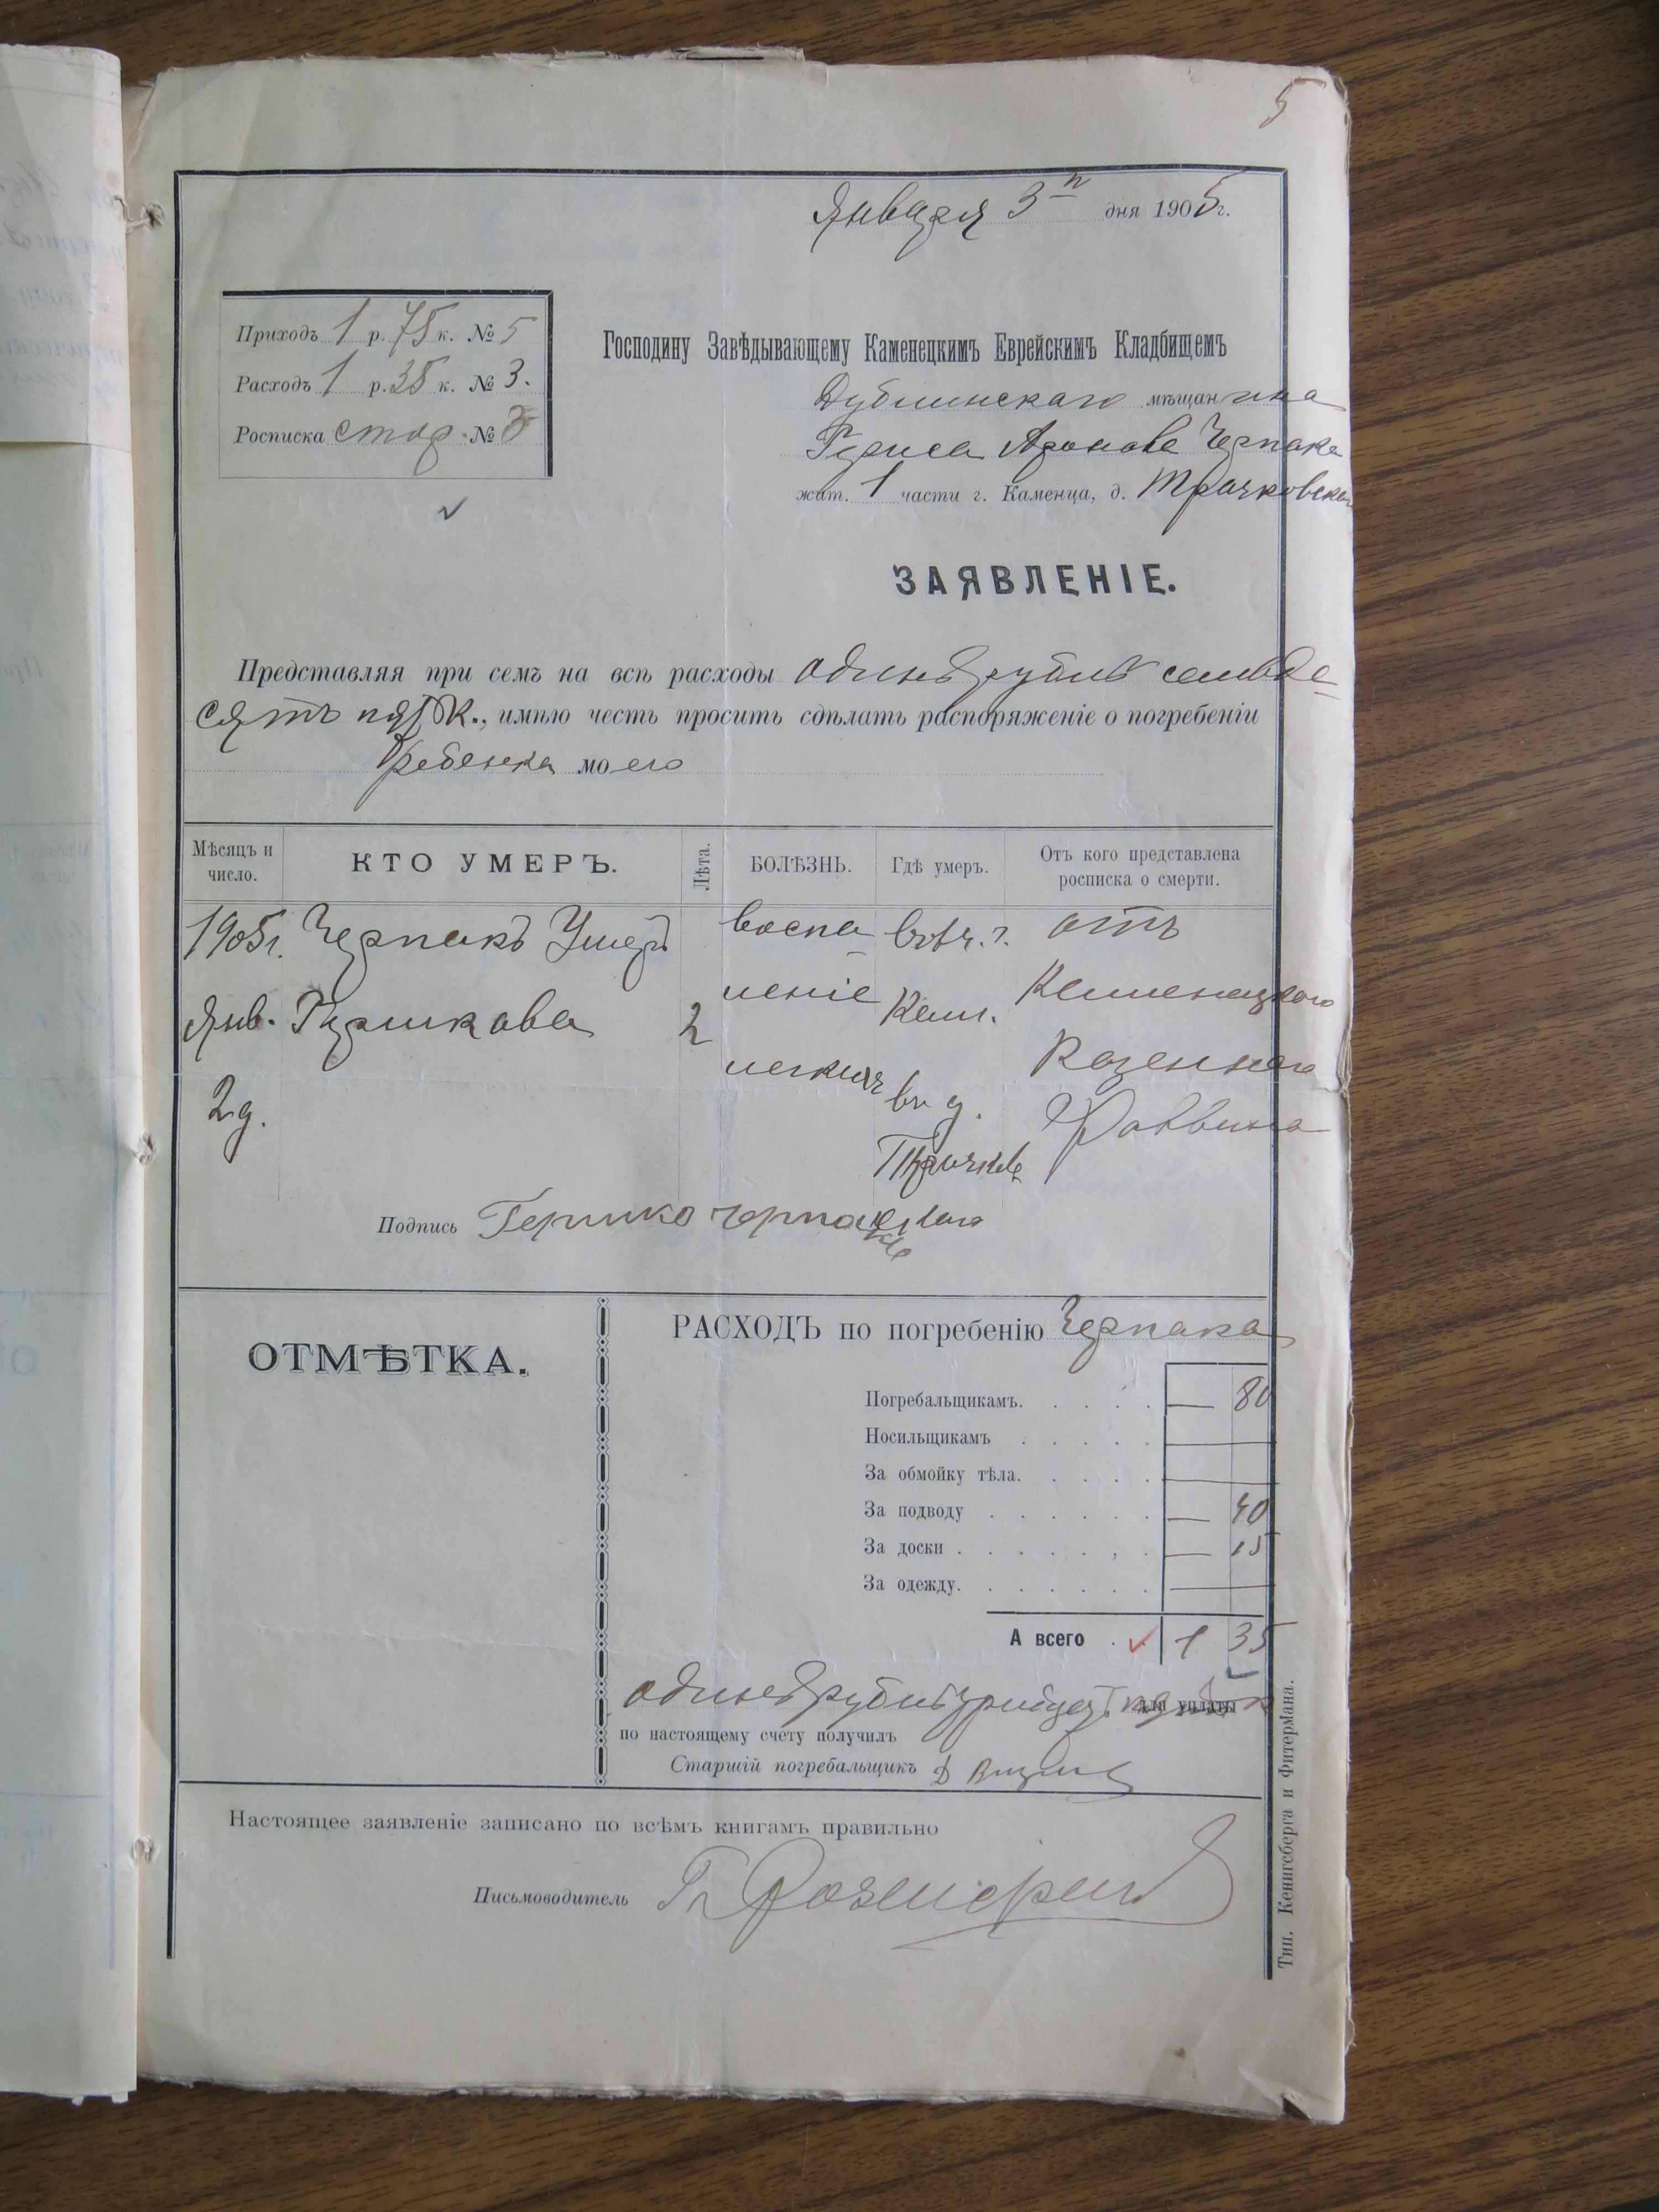 5
Января 3 дня 1905 г.
Приходъ 1 р. 75 к. № 5
Расходъ 1 р. 35 к. № 3.
Росписка стор. № 3
Господину Завѣдывающему Каменецкимъ Еврейскимъ Кладбищемъ
мѣщанина
Аронова Черпака
жит. 1 части г. Каменца, д. Трачковска
ЗАЯВЛЕНІЕ.
Представляя при семъ на всѣ расходы одинъ рубль семьде-
сятъ пять К., имѣю честь просить сдѣлать распоряженіе о погребеніи
ребенка моего
Мѣсяцъ и число.
КТО УМЕРЪ.
Лѣта.
БОЛѢЗНЬ.
Гдѣ умеръ.
Отъ кого представлена росписка о смерти.
1905 г. Черпакъ Ушеръ воспа въ 1 ч. г. отъ
Янв. 2 леніе Кам. Каменецкаго
2 д. легкихъ въ д. Казеннаго
Трачков Раввина
Подпись Гершко
ОТМѢТКА.
РАСХОДЪ по погребенію Черпака
Погребальщикамъ. — 80
Носильщикамъ —
За обмойку тѣла. —
За подводу — 40
За доски — 15
За одежду. —
А всего 1 35
одинъ рубль тридцать пять к для уплаты
по настоящему счету получилъ
Старшій погребальщикъ
Настоящее заявленіе записано по всѣмъ книгамъ правильно
Письмоводитель
Тип. Кенигсберга и Фитермана.